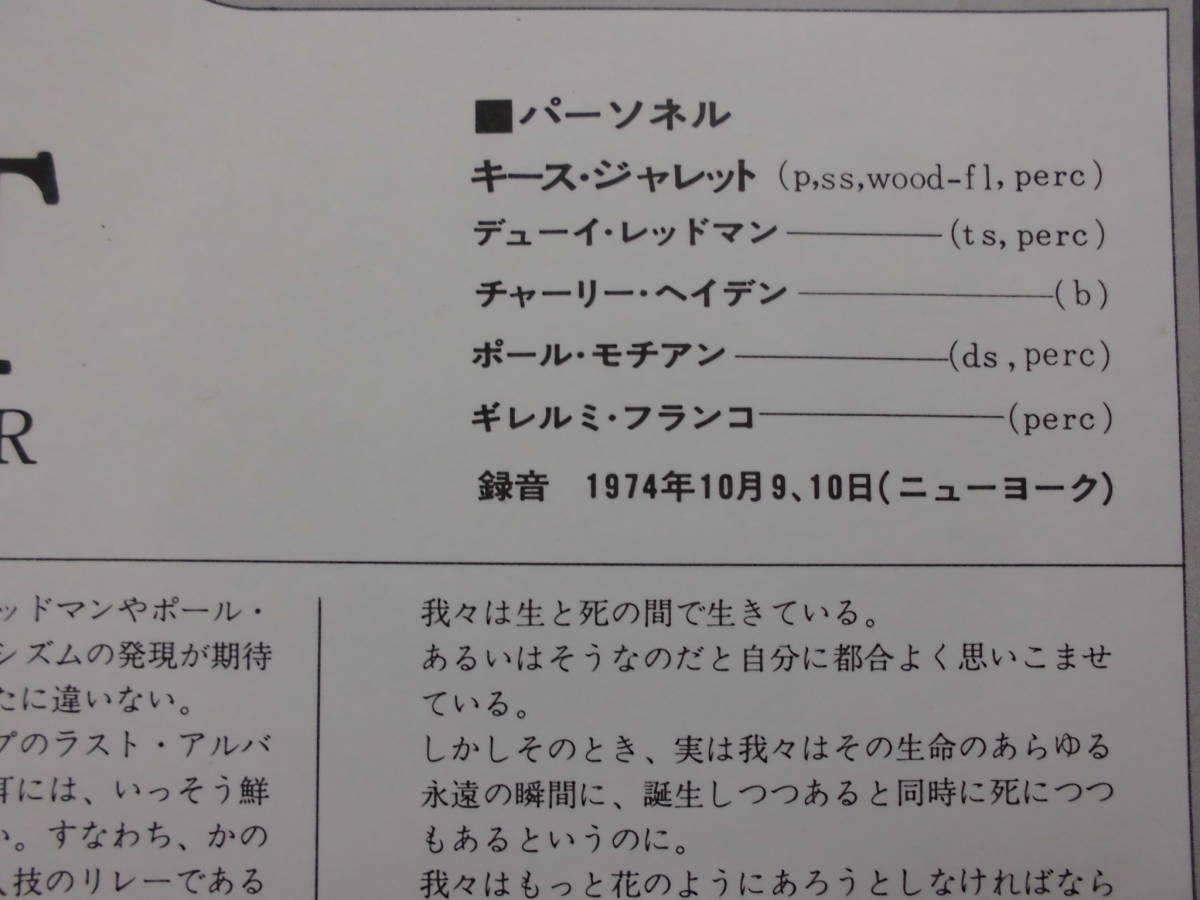 T
R
■パーソネル
キース・ジャレット (p,ss,wood-fl, perc)
デューイ・レッドマン―――(ts, perc)
チャーリー・ヘイデン―――――(b)
ポール・モチアン――――(ds, perc)
ギレルミ・フランコ―――――(perc)
録音 1974年10月9、10日(ニューヨーク)
ッドマンやポール・
シズムの発現が期待
たに違いない。
プのラスト・アルバ
耳には、いっそう鮮
い。すなわち、かの
技のリレーである
我々は生と死の間で生きている。
あるいはそうなのだと自分に都合よく思いこませ
ている。
しかしそのとき、実は我々はその生命のあらゆる
永遠の瞬間に、誕生しつつあると同時に死につつ
もあるというのに。
我々はもっと花のようにあろうとしなければなら